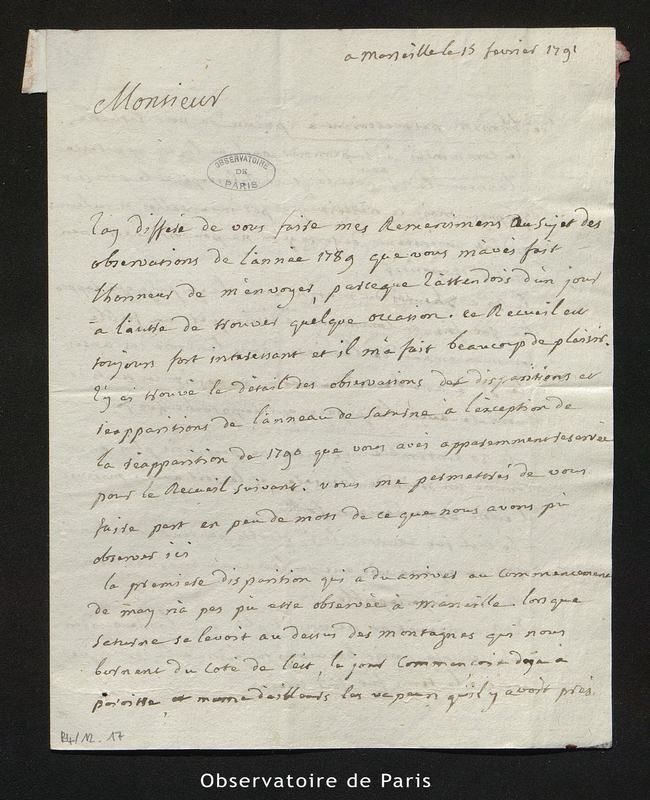 a Marseille le 15 fevrier 1791
Monsieur
OBSERVATOIRE
DE
PARIS
J'ay differé de vous faire mes Remercimens au sujet des
observations de l'année 1789 que vous m'avés fait
l'honneur de m'envoyer, parceque j'attendois d'un jour
à l'autre de trouver quelque occasion. ce Recueil est
toujours fort interessant et il m'a fait beaucoup de plaisir.
J'y ai trouvé le détail des observations des disparitions et
réapparitions de l'anneau de Saturne à l'exception de
la réapparition de 1790 que vous avés apparemment reservée
pour le Recueil suivant. vous me permettrés de vous
faire part en peu de mots de ce que nous avons pû
observer ici
la premiere disparition qui a du arriver au commencement
de may n'a pas pû etre observée à Marseille. lorsque
Saturne se levoit au dessus des montagnes qui nous
bornent du coté de l'est, le jour commencoit deja à
paroitre, et meme d'ailleurs les vapeurs qu'il y avoit près
R4/12. 17
Observatoire de Paris